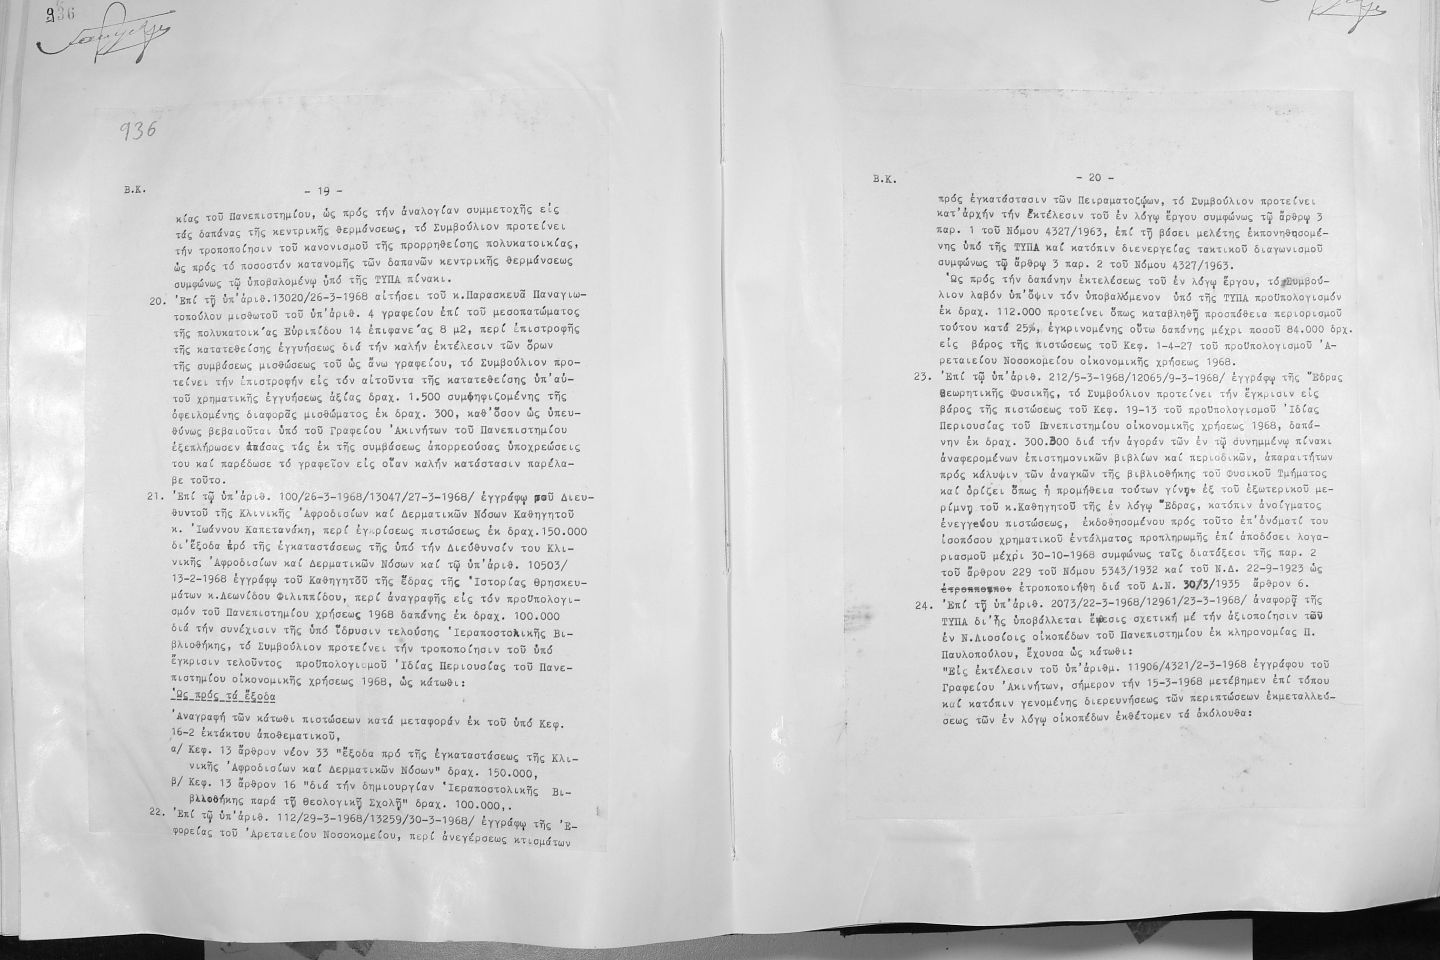 936
936
Β.Κ.
- 19 -
κίας τοῦ Πανεπιστημίου, ὡς πρός τήν ἀναλογίαν συμμετοχῆς εἰς
τάς δαπάνας τῆς κεντρικῆς θερμάνσεως, τό Συμβούλιον προτείνει
τήν τροποποίησιν τοῦ κανονισμοῦ τῆς προρρηθείσης πολυκατοικίας,
ὡς πρός τό ποσοστόν κατανομῆς τῶν δαπανῶν κεντρικῆς θερμάνσεως
συμφώνως τῷ ὑποβαλομένῳ ὑπό τῆς ΤΥΠΑ πίνακι.
20. Ἐπί τῇ ὑπ'ἀριθ.13020/26-3-1968 αἰτήσει τοῦ κ.Παρασκευᾶ Παναγιω-
τοπούλου μισθωτοῦ τοῦ ὑπ'ἀριθ. 4 γραφείου ἐπί τοῦ μεσοπατώματος
τῆς πολυκατοικίας Εὐριπίδου 14 ἐπιφανείας 8 μ2, περί ἐπιστροφῆς
τῆς κατατεθείσης ἐγγυήσεως διά τήν καλήν ἐκτέλεσιν τῶν ὅρων
τῆς συμβάσεως μισθώσεως τοῦ ὡς ἄνω γραφείου, τό Συμβούλιον προ-
τείνει τήν ἐπιστροφήν εἰς τόν αἰτοῦντα τῆς κατατεθείσης ὑπ'αὐ-
τοῦ χρηματικῆς ἐγγυήσεως ἀξίας δραχ. 1.500 συμψηφιζομένης τῆς
ὀφειλομένης διαφορᾶς μισθώματος ἐκ δραχ. 300, καθ'ὅσον ὡς ὑπευ-
θύνως βεβαιοῦται ὑπό τοῦ Γραφείου Ἀκινήτων τοῦ Πανεπιστημίου
ἐξεπλήρωσεν ἁπάσας τάς ἐκ τῆς συμβάσεως ἀπορρεούσας ὑποχρεώσεις
του καί παρέδωσε τό γραφεῖον εἰς οἵαν καλήν κατάστασιν παρέλα-
βε τοῦτο.
21. Ἐπί τῷ ὑπ'ἀριθ. 100/26-3-1968/13047/27-3-1968/ ἐγγράφῳ τοῦ Διευ-
θυντοῦ τῆς Κλινικῆς Ἀφροδισίων καί Δερματικῶν Νόσων Καθηγητοῦ
κ. Ἰωάννου Καπετανάκη, περί ἐγκρίσεως πιστώσεως ἐκ δραχ.150.000
δι'ἔξοδα πρό τῆς ἐγκαταστάσεως τῆς ὑπό τήν Διεύθυνσίν του Κλι-
νικῆς Ἀφροδισίων καί Δερματικῶν Νόσων καί τῷ ὑπ'ἀριθ. 10503/
13-2-1968 ἐγγράφῳ τοῦ Καθηγητοῦ τῆς ἕδρας τῆς Ἱστορίας θρησκευ-
μάτων κ.Λεωνίδου Φιλιππίδου, περί ἀναγραφῆς εἰς τόν προϋπολογι-
σμόν τοῦ Πανεπιστημίου χρήσεως 1968 δαπάνης ἐκ δραχ. 100.000
διά τήν συνέχισιν τῆς ὑπό ἵδρυσιν τελούσης Ἱεραποστολικῆς Βι-
βλιοθήκης, τό Συμβούλιον προτείνει τήν τροποποίησιν τοῦ ὑπό
ἔγκρισιν τελοῦντος προϋπολογισμοῦ Ἰδίας Περιουσίας τοῦ Πανε-
πιστημίου οἰκονομικῆς χρήσεως 1968, ὡς κάτωθι:
Ὡς πρός τά ἔξοδα
Ἀναγραφή τῶν κάτωθι πιστώσεων κατά μεταφοράν ἐκ τοῦ ὑπό Κεφ.
16-2 ἐκτάκτου ἀποθεματικοῦ,
α/ Κεφ. 13 ἄρθρον νέον 33 "ἔξοδα πρό τῆς ἐγκαταστάσεως τῆς Κλι-
νικῆς Ἀφροδισίων καί Δερματικῶν Νόσων" δραχ. 150.000,
β/ Κεφ. 13 ἄρθρον 16 "διά τήν δημιουργίαν Ἱεραποστολικῆς Βι-
βλιοθήκης παρά τῇ Θεολογικῇ Σχολῇ" δραχ. 100.000,.
22. Ἐπί τῷ ὑπ'ἀριθ. 112/29-3-1968/13259/30-3-1968/ ἐγγράφῳ τῆς Ἐ-
φορείας τοῦ Ἀρεταιείου Νοσοκομείου, περί ἀνεγέρσεως κτισμάτων
Β.Κ.
- 20 -
πρός ἐγκατάστασιν τῶν Πειραματοζώων, τό Συμβούλιον προτείνει
κατ'ἀρχήν τήν ἐκτέλεσιν τοῦ ἐν λόγῳ ἔργου συμφώνως τῷ ἄρθρῳ 3
παρ. 1 τοῦ Νόμου 4327/1963, ἐπί τῇ βάσει μελέτης ἐκπονηθησομέ-
νης ὑπό τῆς ΤΥΠΑ καί κατόπιν διενεργείας τακτικοῦ διαγωνισμοῦ
συμφώνως τῷ ἄρθρῳ 3 παρ. 2 τοῦ Νόμου 4327/1963.
Ὡς πρός τήν δαπάνην ἐκτελέσεως τοῦ ἐν λόγῳ ἔργου, τό Συμβού-
λιον λαβόν ὑπ'ὄψιν τόν ὑποβαλόμενον ὑπό τῆς ΤΥΠΑ προϋπολογισμόν
ἐκ δραχ. 112.000 προτείνει ὅπως καταβληθῇ προσπάθεια περιορισμοῦ
τούτου κατά 25%, ἐγκρινομένης οὕτω δαπάνης μέχρι ποσοῦ 84.000 δρχ.
εἰς βάρος τῆς πιστώσεως τοῦ Κεφ. 1-4-27 τοῦ προϋπολογισμοῦ Ἀ-
ρεταιείου Νοσοκομείου οἰκονομικῆς χρήσεως 1968.
23. Ἐπί τῷ ὑπ'ἀριθ. 212/5-3-1968/12065/9-3-1968/ ἐγγράφῳ τῆς Ἕδρας
Θεωρητικῆς Φυσικῆς, τό Συμβούλιον προτείνει τήν ἔγκρισιν εἰς
βάρος τῆς πιστώσεως τοῦ Κεφ. 19-13 τοῦ προϋπολογισμοῦ Ἰδίας
Περιουσίας τοῦ Πανεπιστημίου οἰκονομικῆς χρήσεως 1968, δαπά-
νην ἐκ δραχ. 300.300 διά τήν ἀγοράν τῶν ἐν τῷ συνημμένῳ πίνακι
ἀναφερομένων ἐπιστημονικῶν βιβλίων καί περιοδικῶν, ἀπαραιτήτων
πρός κάλυψιν τῶν ἀναγκῶν τῆς βιβλιοθήκης τοῦ Φυσικοῦ Τμήματος
καί ὁρίζει ὅπως ἡ προμήθεια τούτων γίνῃ ἐξ τοῦ ἐξωτερικοῦ με-
ρίμνῃ τοῦ κ.Καθηγητοῦ τῆς ἐν λόγῳ Ἕδρας, κατόπιν ἀνοίγματος
ἐνεγγύου πιστώσεως, ἐκδοθησομένου πρός τοῦτο ἐπ'ὀνόματί του
ἰσοπόσου χρηματικοῦ ἐντάλματος προπληρωμῆς ἐπί ἀποδόσει λογα-
ριασμοῦ μέχρι 30-10-1968 συμφώνως ταῖς διατάξεσι τῆς παρ. 2
τοῦ ἄρθρου 229 τοῦ Νόμου 5343/1932 καί τοῦ Ν.Δ. 22-9-1923 ὡς
ἐτροποποιήθη διά τοῦ Α.Ν. 30/3/1935 ἄρθρον 6.
24. Ἐπί τῇ ὑπ'ἀριθ. 2073/22-3-1968/12961/23-3-1968/ ἀναφορᾷ τῆς
ΤΥΠΑ δι'ἧς ὑποβάλλεται ἔκθεσις σχετική μέ τήν ἀξιοποίησιν τῶν
ἐν Ν.Λιοσίοις οἰκοπέδων τοῦ Πανεπιστημίου ἐκ κληρονομίας Π.
Παυλοπούλου, ἔχουσα ὡς κάτωθι:
"Εἰς ἐκτέλεσιν τοῦ ὑπ'ἀριθμ. 11906/4321/2-3-1968 ἐγγράφου τοῦ
Γραφείου Ἀκινήτων, σήμερον τήν 15-3-1968 μετέβημεν ἐπί τόπου
καί κατόπιν γενομένης διερευνήσεως τῶν περιπτώσεων ἐκμεταλλεύ-
σεως τῶν ἐν λόγῳ οἰκοπέδων ἐκθέτομεν τά ἀκόλουθα: